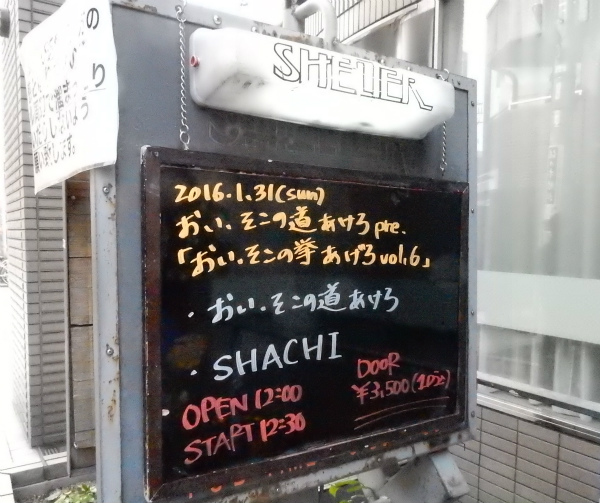 SHELTER
2016.1.31(sun)
おい、そこの道あけろ pre.
「おい、そこの拳あげろ vol.6」
・おい、そこの道あけろ
・SHACHI
OPEN 12:00
START 12:30
DOOR
¥3,500(1D込)